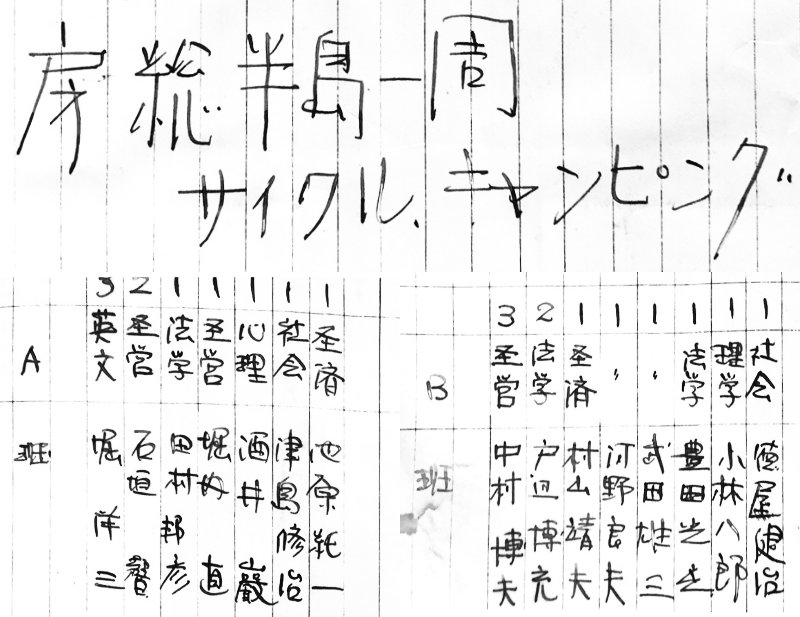 房総半島一周
サイクル.キャンピング
A班
3 英文 堀 洋三
2 圣営 石垣
1 法学 田村邦彦
1 圣営 堀内 直
1 心理 酒井 巖
1 社会 津島修治
1 圣済 池原
B班
3 圣営 中村 博夫
2 法学 戸辺博充
1 圣済 村山靖夫
1 〃 河野良夫
1 〃 武田雄三
1 法学 豊田
1 理学 小林八郎
1 社会 徳屋健治